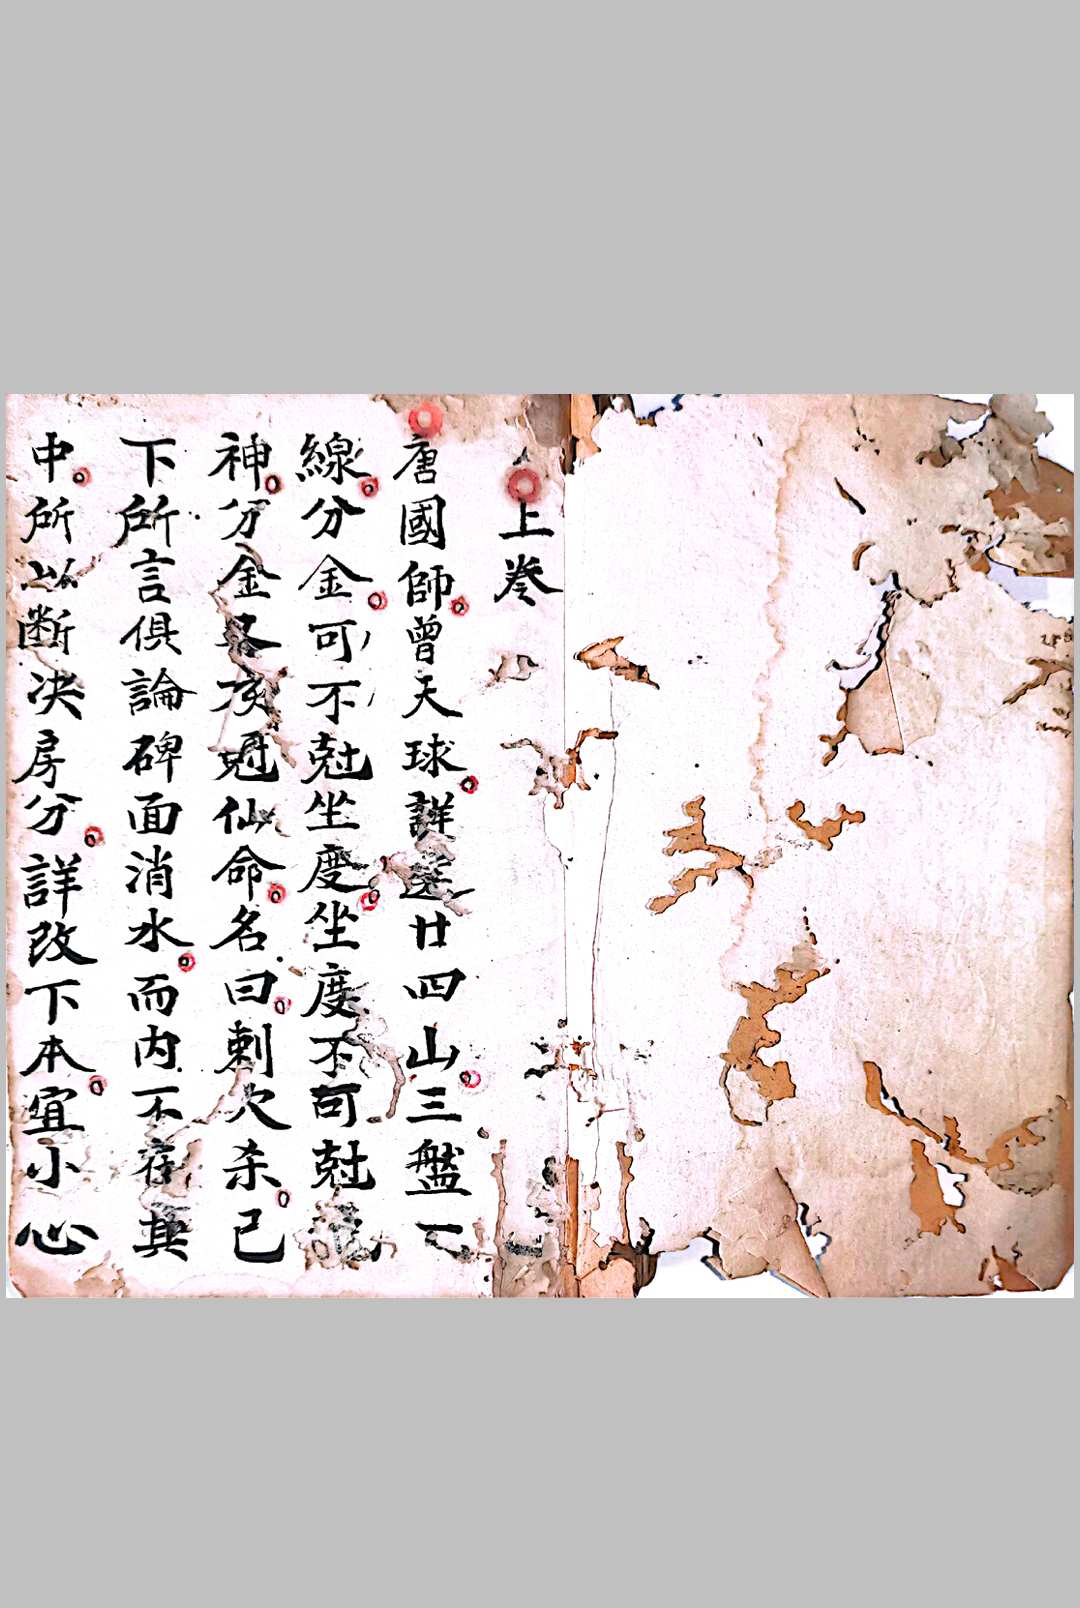 上卷
唐國師曾天球詳選廿四山三盤一
線分金可不尅坐度坐度不可尅
神分金名次尅仙命名曰刺穴杀已
下所言俱論碑面消水而内不在其
中所以断决房分詳改下本宜小心